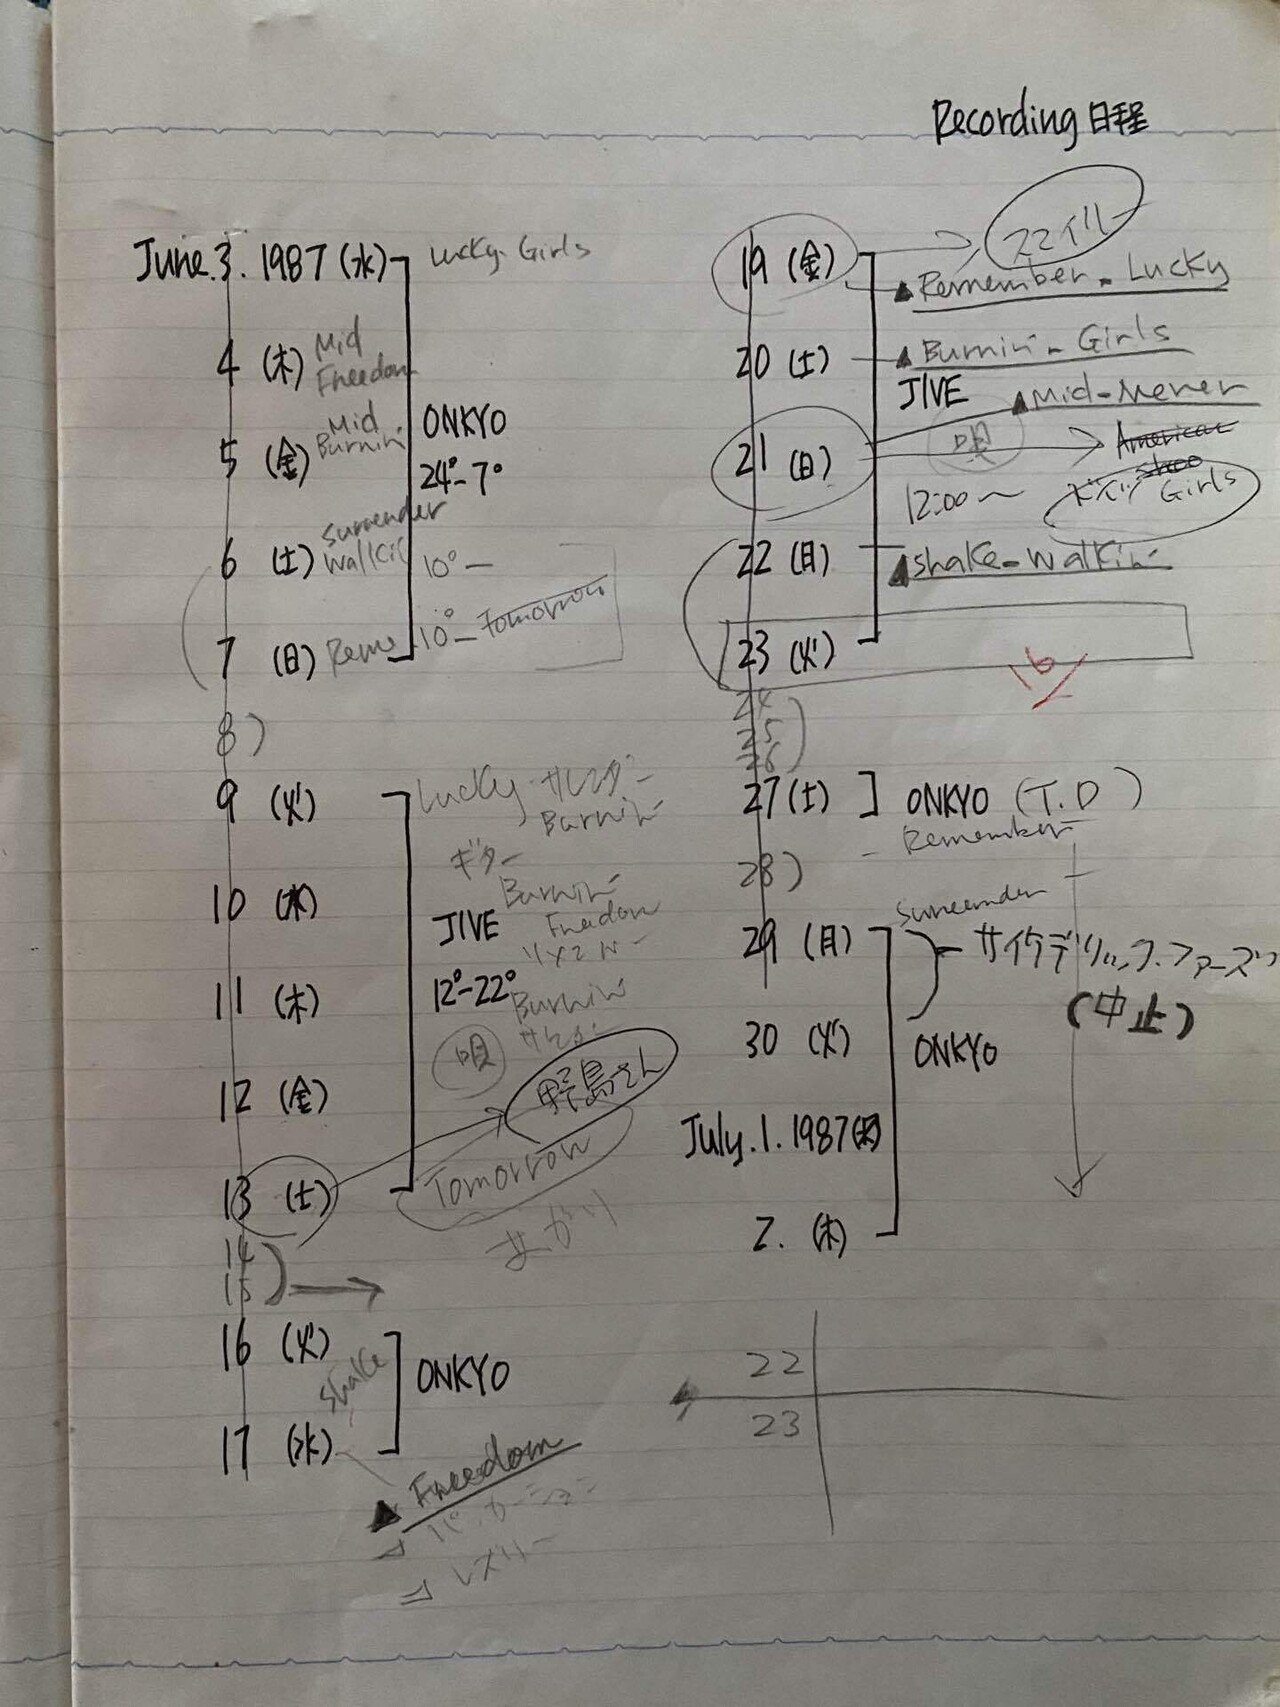 Recording 日程
June.3. 1987 (水) Lucky. Girls
4 (木) Mid Freedom
5 (金) Mid Burnin'
ONKYO
24°-7°
6 (土) Surrender Walkin' 10°-
7 (日) Reme 10°- Tomorrow
8)
9 (火) Lucky. サレンダー
Burnin'
ギター
10 (水) Burnin'
JIVE Freedom
11 (木) 12°-22° Burnin'
唄
野島さん
12 (金)
13 (土) Tomorrow
14
15)
16 (火) Shake
ONKYO
17 (水)
Freedom
パーカーション
レズリー
19 (金)
Remember - Lucky
20 (土) Burnin' - Girls
JIVE Mid-Never
唄 American
21 (日) Shoo
12:00〜 Girls
22 (月) Shake - Walkin'
23 (火) 16
24
25
26)
27 (土) ONKYO (T.D)
- Remember
28)
Surrender
29 (月) サイケデリック・ファーズ
(中止)
30 (火) ONKYO
July. 1. 1987 (水)
2. (木)
22
23